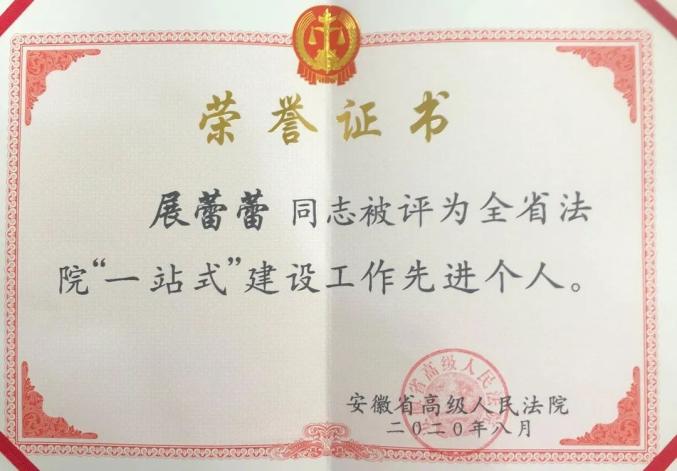 荣誉证书
展蕾蕾 同志被评为全省法
院“一站式”建设工作先进个人。
安徽省高级人民法院
二〇二〇年八月